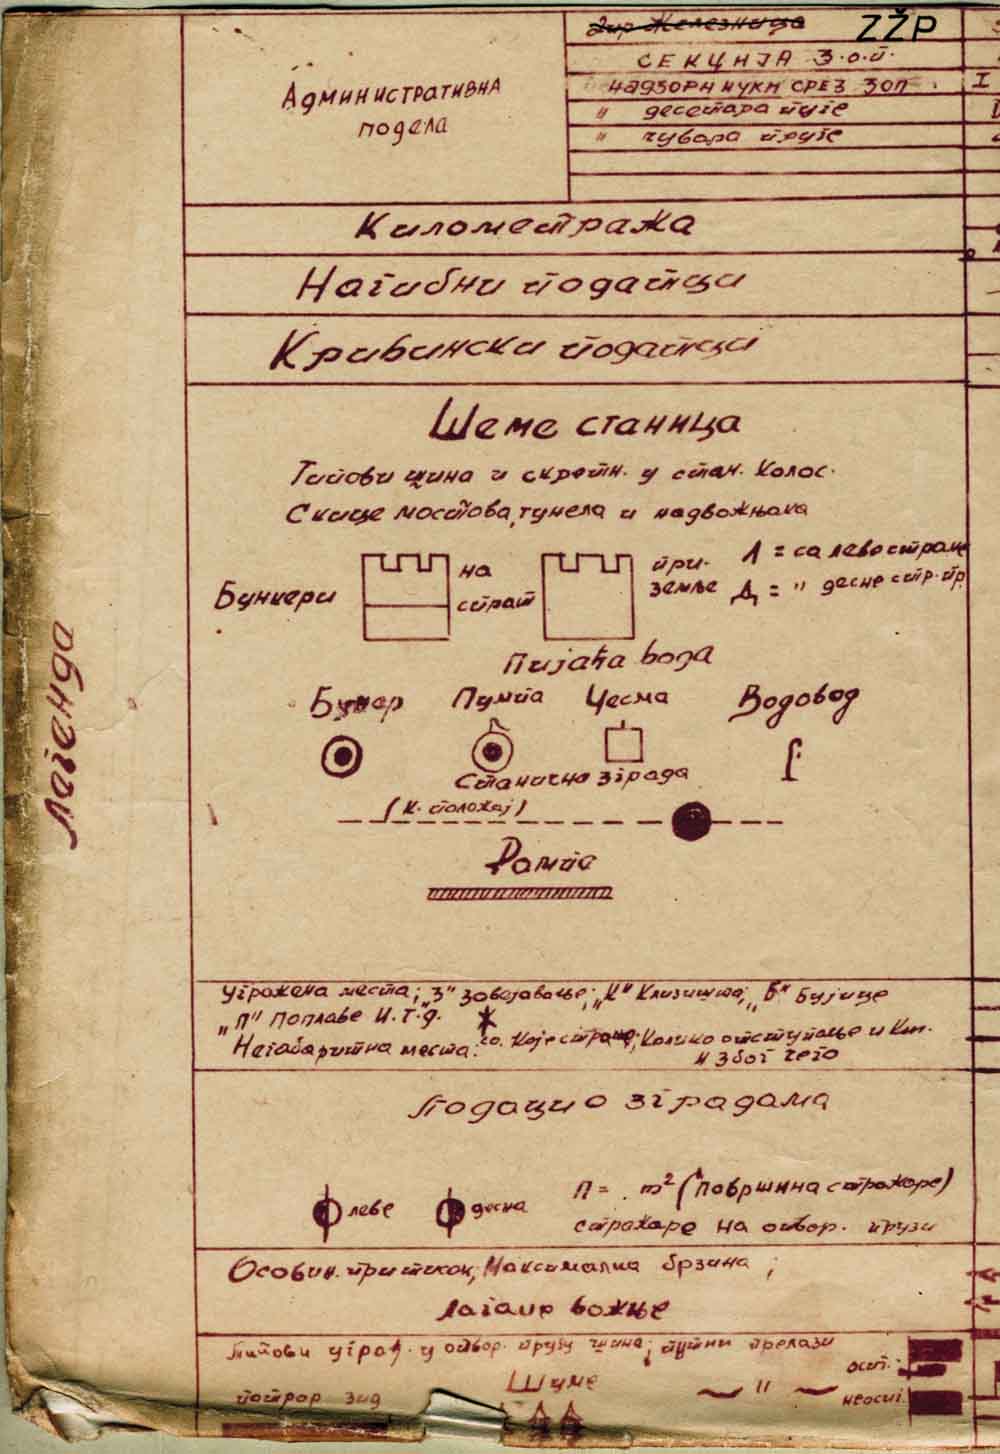 Лагенда
Административна
подела
Дир Железница ZŽP
СЕКЦИЈА З.О.П.
НАДЗОРНИЧКИ СРЕЗ ЗОП. I
" десетара пруге
" чувара пруге
Километража
Нагибни подаци
Кривински подаци
Шеме станица
Типови шина и скретн. у стан. Колос.
Скице мостова, тунела и надвожњака
Бункери
на
спрат
при-
земље
Л = са лево стране
Д = " десне стр. пр.
Пијаћа вода
Бунар Пумпа Чесма Водовод
Станична зграда
(К. положај)
Рампа
Угрожена места; „З" Завејавање; „К" Клизишта; „Б" Бујице
„П" Поплаве И.т.д.
Негабаритна места: са Које стране; Колико отступање и Км.
и Због чега
Подаци о зградама
леве десна
П = . m² (Површина стражаре)
стражаре на отвор. прузи
Особин. притисак; Максимална брзина;
лагане вожње
Типови уграђ. у отвор. пругу шина; путни прелази
Шуме
"
осиг.
неосиг.
потпор зид